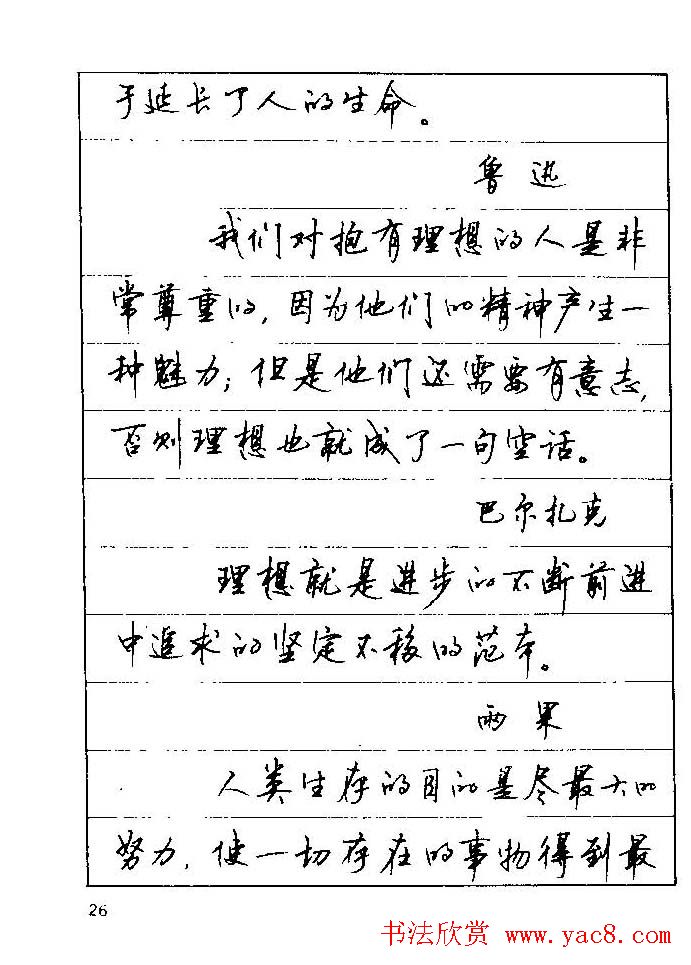 于延长了人的生命。
鲁迅
我们对抱有理想的人是非
常尊重的,因为他们的精神产生一
种魅力;但是他们还需要有意志,
否则理想也就成了一句空话。
巴尔扎克
理想就是进步的不断前进
中追求的坚定不移的范本。
雨果
人类生存的目的是尽最大的
努力,使一切存在的事物得到最
26
书法欣赏 www.yac8.com